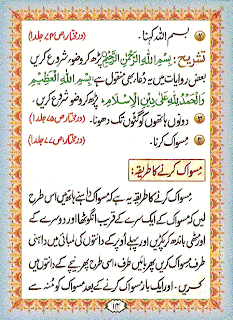 ۲ بسم اللہ کہنا۔ (درمختار ص ۷۴ جلد ۱)
تشریح: بِسْمِ اللهِ الرَّحْمٰنِ الرَّحِيْمِ پڑھ کر وضو شروع کریں
بعض روایات میں یہ دعا بھی منقول ہے بِسْمِ اللهِ الْعَظِيْمِ
وَالْحَمْدُ لِلّٰهِ عَلٰى دِيْنِ الْاِسْلَامِ۔ پڑھ کر وضو شروع کریں۔
۳ دونوں ہاتھوں کو گٹوں تک دھونا۔ (درمختار ص ۷۵ جلد ۱)
۴ مسواک کرنا۔ (درمختار ص ۷۷ جلد ۱)
مسواک کرنے کا طریقہ:
مسواک کرنے کا طریقہ یہ ہے کہ مسواک داہنے ہاتھ میں اس طرح
لیں کہ مسواک کے ایک سرے کے قریب انگوٹھا اور دوسرے کے
اور مٹھی باندھ کر پکڑیں اور پہلے اوپر کے دانتوں کی لمبائی میں داہنی
طرف مسواک کریں پھر بائیں طرف، اسی طرح پھر نیچے کے دانتوں میں
کریں۔ اور ایک بار مسواک کرنے کے بعد مسواک کو منہ سے
۱۳